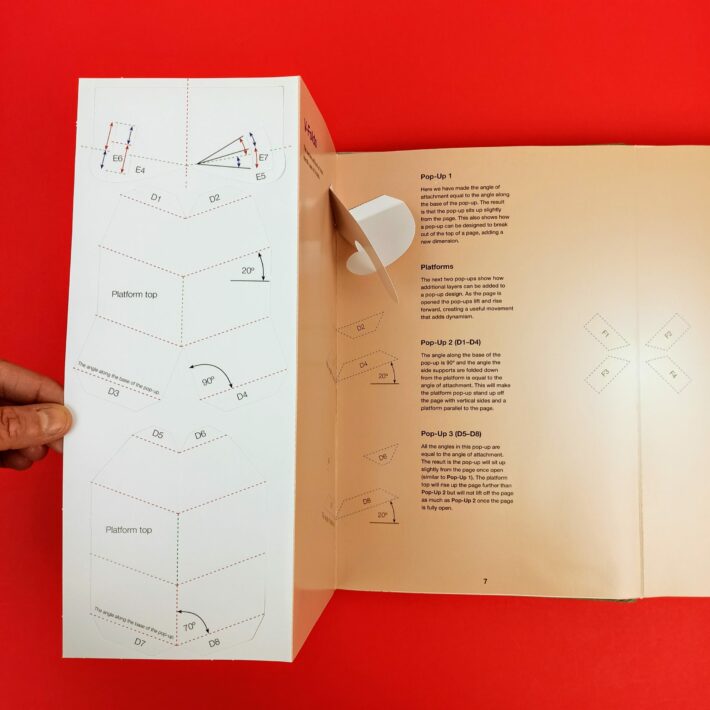 E6
E7
E4
E5
D1
D2
20º
Platform top
The angle along the base of the pop-up
90º
D3
D4
D5
D6
Platform top
The angle along the base of the pop-up
70º
D7
D8
D2
D4
20º
D6
D8
20º
Pop-Up 1
Here we have made the angle of
attachment equal to the angle along
the base of the pop-up. The result
is that the pop-up sits up slightly
from the page. This also shows how
a pop-up can be designed to break
out of the top of a page, adding a
new dimension.
Platforms
The next two pop-ups show how
additional layers can be added to
a pop-up design. As the page is
opened the pop-ups lift and rise
forward, creating a useful movement
that adds dynamism.
Pop-Up 2 (D1–D4)
The angle along the base of the
pop-up is 90º and the angle the
side supports are folded down
from the platform is equal to the
angle of attachment. This will make
the platform pop-up stand up off
the page with vertical sides and a
platform parallel to the page.
Pop-Up 3 (D5–D8)
All the angles in this pop-up are
equal to the angle of attachment.
The result is the pop-up will sit up
slightly from the page once open
(similar to Pop-Up 1). The platform
top will rise up the page further than
Pop-Up 2 but will not lift off the page
as much as Pop-Up 2 once the page
is fully open.
7
F1
F2
F3
F4